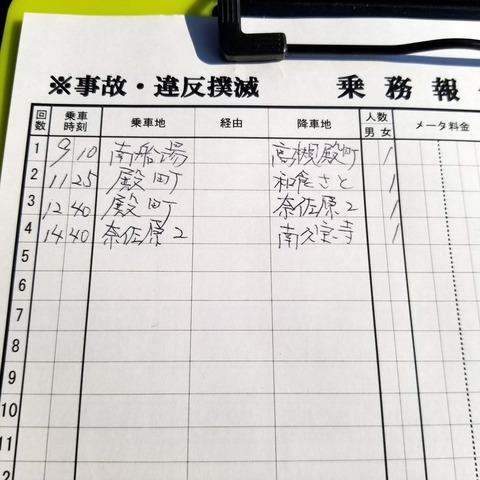 ※事故・違反撲滅 乗務報
回数 乗車時刻 乗車地 経由 降車地 人数 男 女 メータ料金
1 9 10 南船場 高槻殿町 1
2 11 25 殿町 和食さと 1
3 12 40 殿町 奈佐原2 1
4 14 40 奈佐原2 南久宝寺 1
5
6
7
8
9
10
11